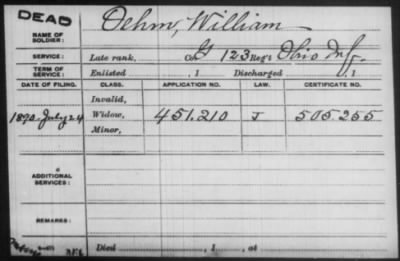 DEAD
NAME OF SOLDIER: Oehm, William
SERVICE: Late rank, Co. G 123 Reg't Ohio Inf.
TERM OF SERVICE: Enlisted , 1 Discharged , 1
DATE OF FILING. CLASS. APPLICATION NO. LAW. CERTIFICATE NO.
Invalid,
1890. July 24 Widow, 451.210 J 505.255
Minor,
ADDITIONAL SERVICES:
REMARKS:
Died , 1 , at